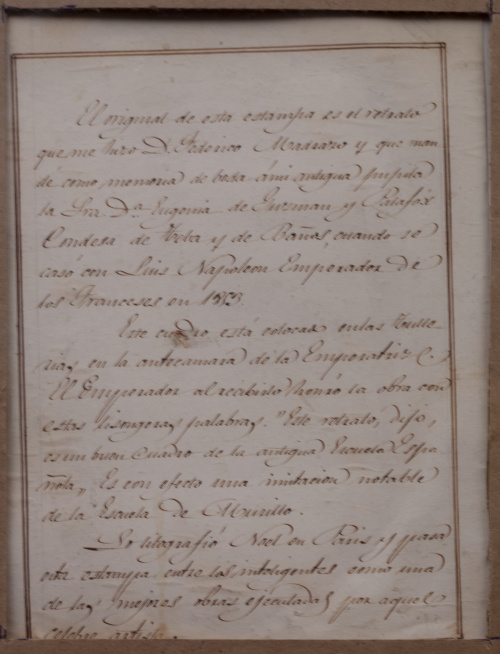 El original de esta estampa es el retrato
que me hizo D. Federico Madrazo y que man
dé como memoria de boda á mi antigua pupila
la Sra. D.ª Eugenia de Guzman y Palafóx
Condesa de Teba y de Baños, cuando se
casó con Luis Napoleon Emperador de
los Franceses en 1853.
Este cuadro está colocado en las Tulle-
rias en la antecamara de la Emperatriz
El Emperador al recibirlo honró la obra con
estas lisongeras palabras. "Este retrato, dijo,
es un buen cuadro de la antigua Escuela Espa
ñola„ Es con efecto una imitacion notable
de la Escuela de Murillo.
Lo litografió Noel en Paris y pasa
esta estampa entre los inteligentes como una
de las mejores obras ejecutadas por aquel
celebre artista.